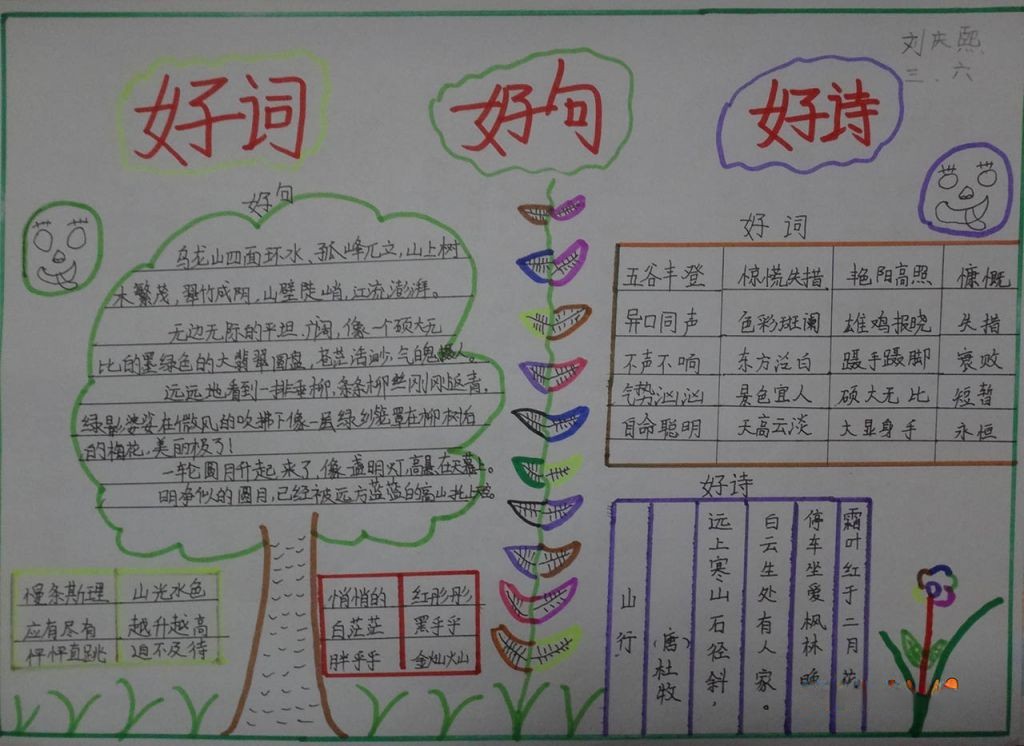 刘庆熙
三.六
好词
好句
好诗
好句
乌龙山四面环水、孤峰兀立,山上树
木繁茂,翠竹成阴,山壁陡峭,江流澎湃。
无边无际的平坦、广阔,像一个硕大无
比的墨绿色的大翡翠圆盘,苍茫渺,气魄人。
远远地看到一排垂柳,条条柳丝刚刚版青,
绿影婆娑在微风的吹拂下像一虽绿纱笼罩在柳树后
的梅花,美丽极了!
一轮圆月升起来了,像一盏明灯,高悬在天幕上。
明净似的圆月,已经被远方蓝蓝的高山托上。
好词
五谷丰登 惊慌失措 艳阳高照 慷慨
异口同声 色彩斑阑 雄鸡报晓 失措
不声不响 东方泊白 蹑手蹑脚 衰败
气势汹汹 景色宜人 硕大无比 短暂
自命聪明 天高云淡 大显身手 永恒
慢条斯理 山光水色
应有尽有 越升越高
怦怦直跳 迫不及待
悄悄的 红彤彤
白茫茫 黑乎乎
胖乎乎 金灿灿
好诗
山行
(唐)杜牧
远上寒山石径斜,
白云生处有人家。
停车坐爱枫林晚
霜叶红于二月花